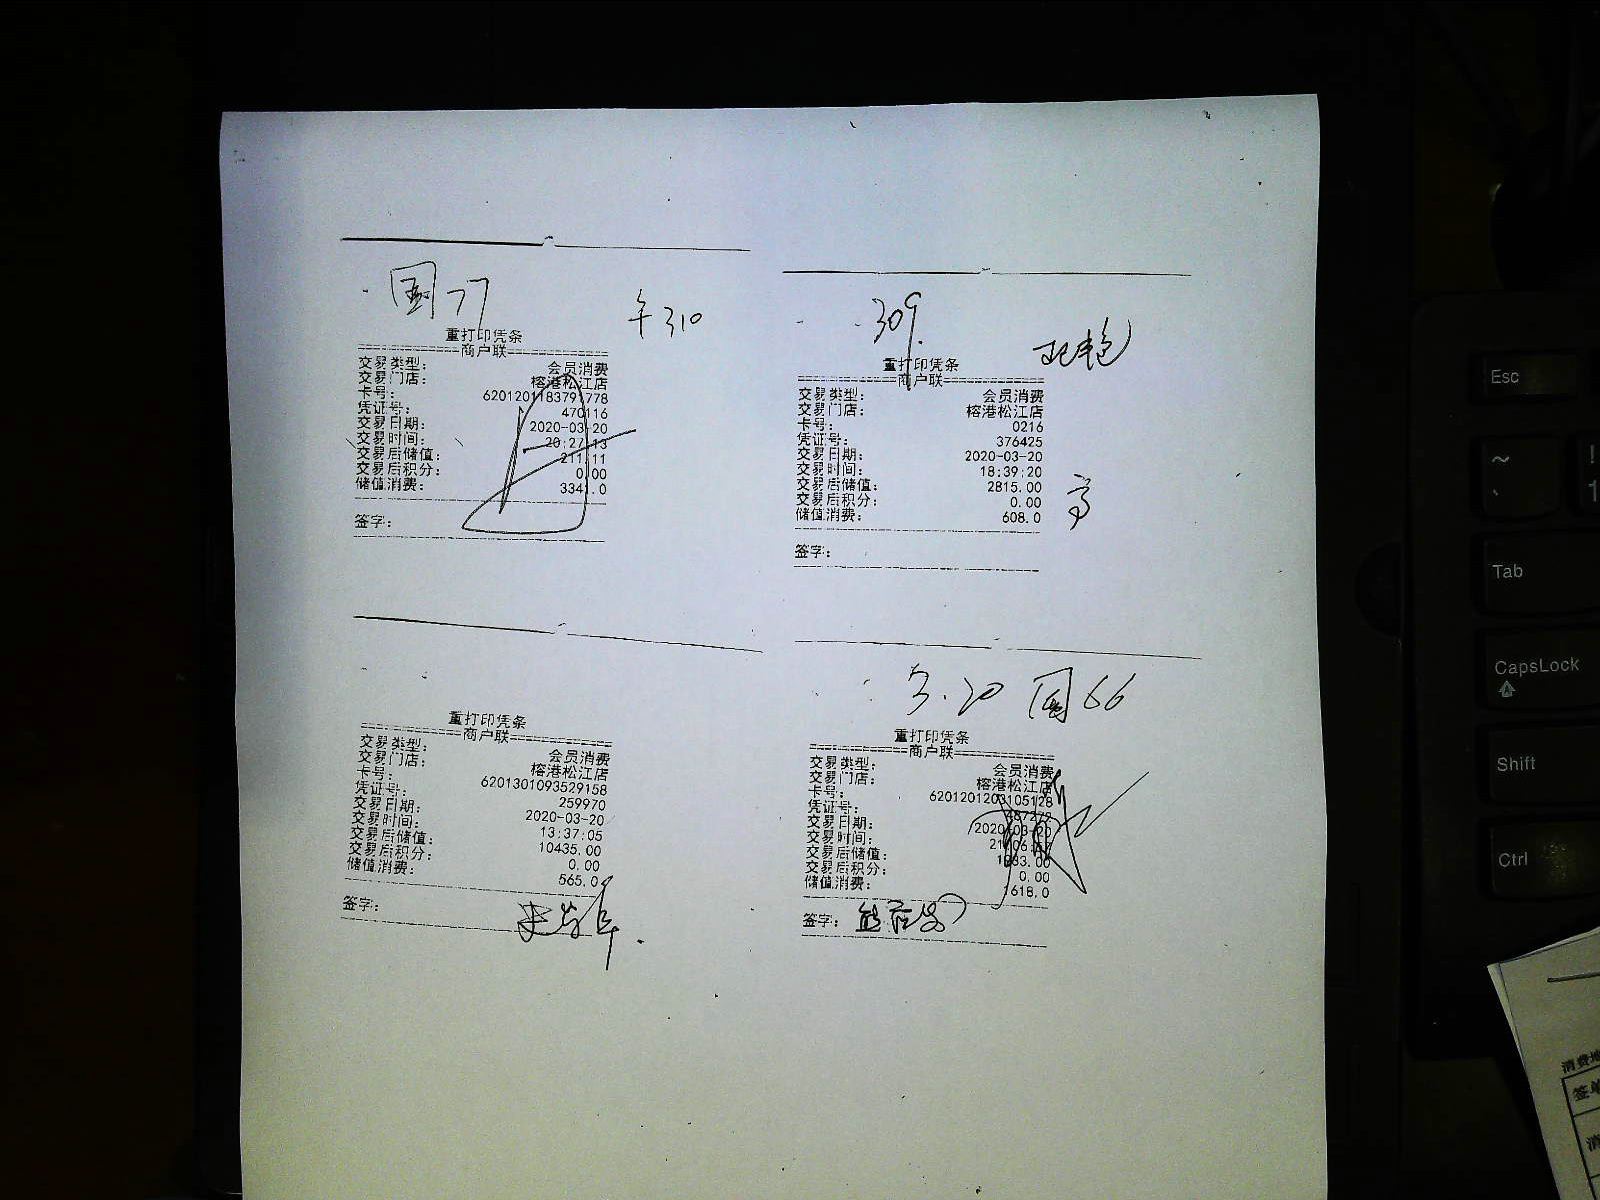 国77
午310
重打印凭条
商户联
交易类型: 会员消费
交易门店: 榕港松江店
卡号: 6201201183791778
凭证号: 470116
交易日期: 2020-03-20
交易时间: 20:27:13
交易后储值: 211.11
交易后积分: 0.00
储值消费: 3341.0
签字:
309
重打印凭条
商户联
交易类型: 会员消费
交易门店: 榕港松江店
卡号: 0216
凭证号: 376425
交易日期: 2020-03-20
交易时间: 18:39:20
交易后储值: 2815.00
交易后积分: 0.00
储值消费: 608.0
签字:
重打印凭条
商户联
交易类型: 会员消费
交易门店: 榕港松江店
卡号: 6201301093529158
凭证号: 259970
交易日期: 2020-03-20
交易时间: 13:37:05
交易后储值: 10435.00
交易后积分: 0.00
储值消费: 565.0
签字:
3.20 国66
重打印凭条
商户联
交易类型: 会员消费
交易门店: 榕港松江店
卡号: 6201201203105128
凭证号:
交易日期: 2020-03-20
交易时间:
交易后储值:
交易后积分: 0.00
储值消费: 1618.0
签字:
Esc
~
!
1
Tab
CapsLock
Shift
Ctrl
消费地
签单
消